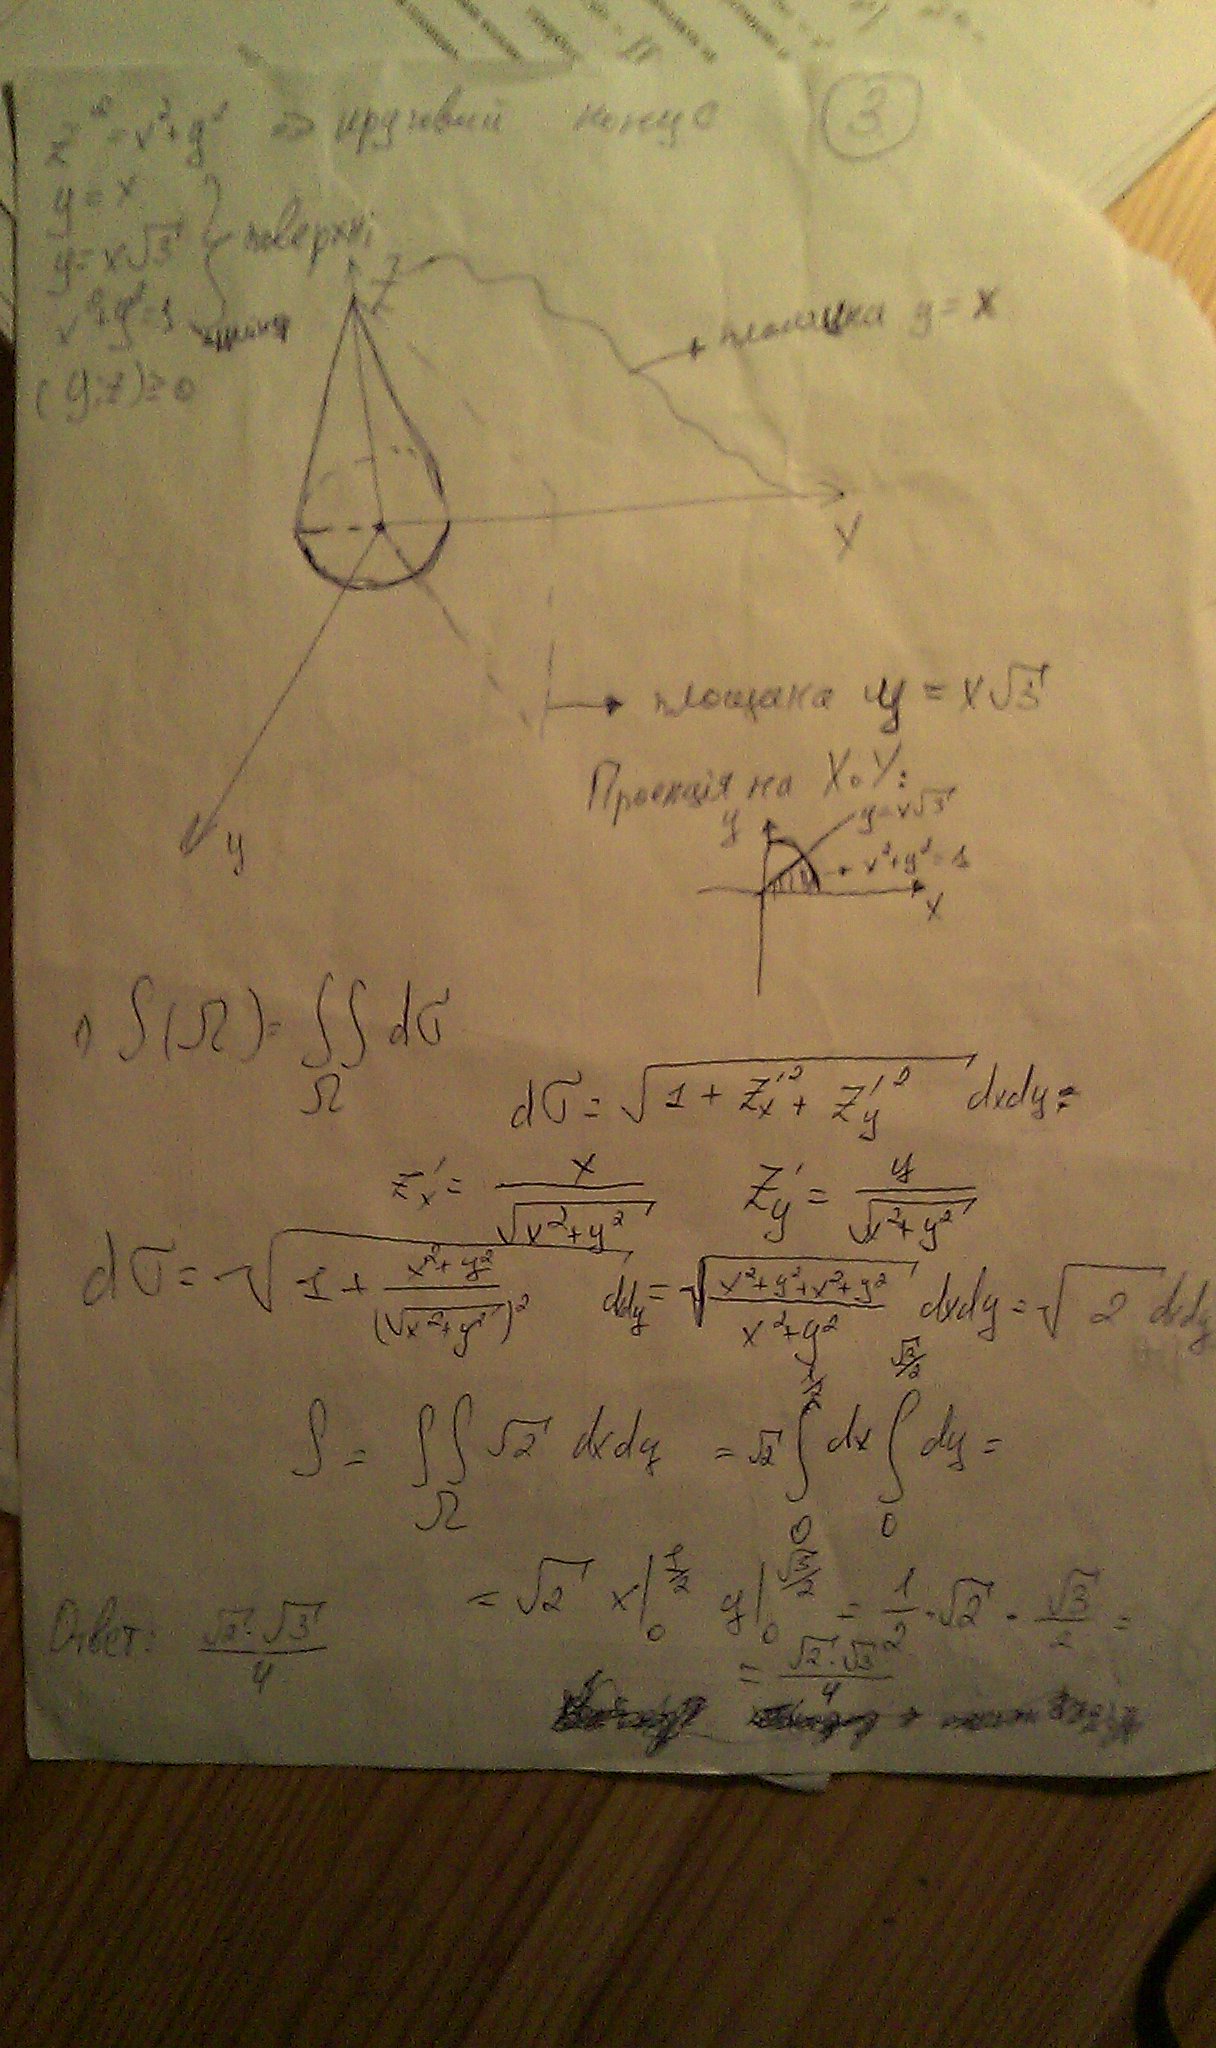 z² = x² + y² ⇒ круговий конус ③
y = x
y = x√3 } поверхні
x² + y² = 1
(y; z) ≥ 0
Z
площина y = x
X
y
площина y = x√3
Проекція на XoY:
y
y = x√3
x² + y² = 1
X
1) S(Ω) = ∬_Ω dσ
dσ = √(1 + z'ₓ² + z'ᵧ²) dxdy =
z'ₓ = x/√(x² + y²) z'ᵧ = y/√(x² + y²)
dσ = √(1 + (x² + y²)/(√(x² + y²))²) ddy = √((x² + y² + x² + y²)/(x² + y²)) dxdy = √2 dxdy
S = ∬_Ω √2 dxdy = √2 ∫₀^(1/2) dx ∫₀^(√3/2) dy =
= √2 x|₀^(1/2) y|₀^(√3/2) = 1/2 · √2 · √3/2 =
= √2·√3/4
Ответ: √2·√3/4